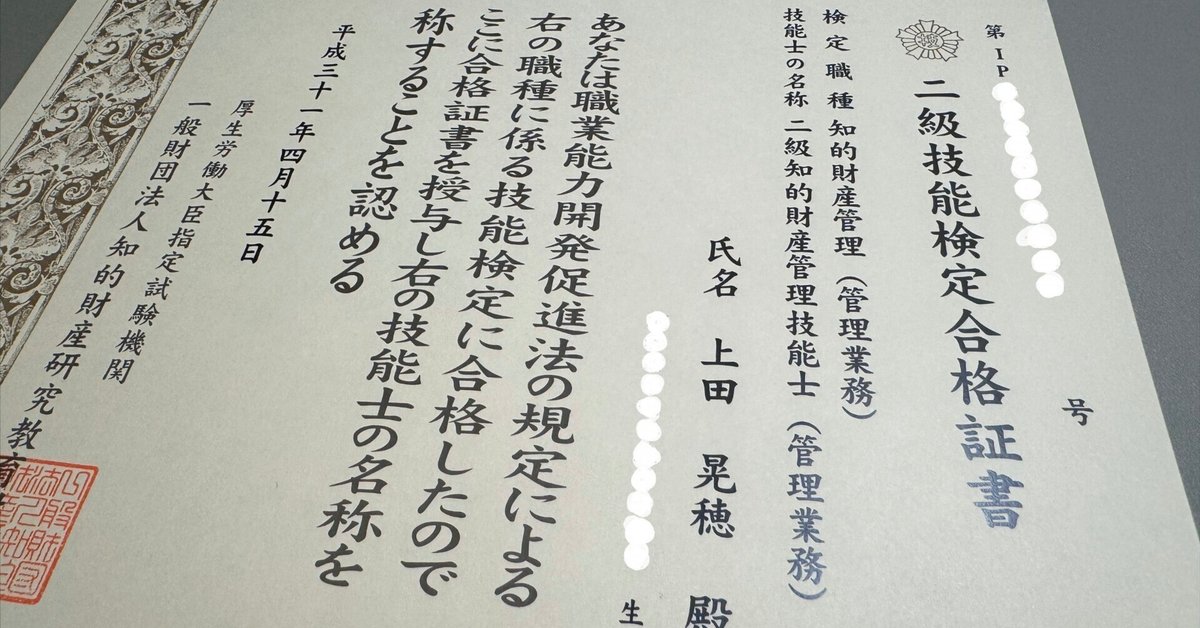 第IP
号
二級技能検定合格証書
検定職種 知的財産管理(管理業務)
技能士の名称 二級知的財産管理技能士(管理業務)
氏名 上田 晃穂 殿
生
あなたは職業能力開発促進法の規定による
右の職種に係る技能検定に合格したので
ここに合格証書を授与し右の技能士の名称を
称することを認める
平成三十一年四月十五日
厚生労働大臣指定試験機関
一般財団法人知的財産研究教育